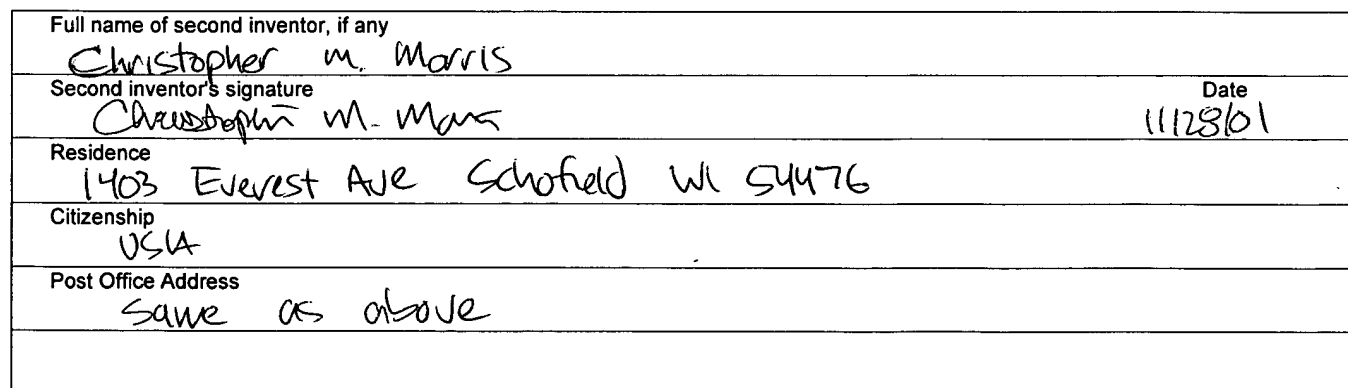 Full name of second inventor, if any
Christopher M. Morris
Second inventor's signature Date
Christopher M. Morris 11/28/01
Residence
1403 Everest Ave Schofield WI 54476
Citizenship
USA
Post Office Address
Same as above